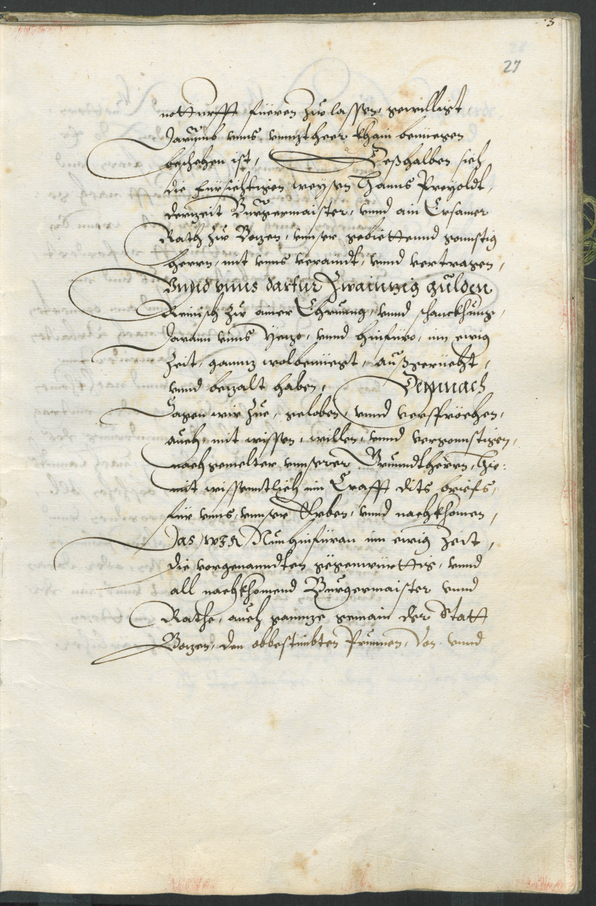 27
notturfft fueren zu lassen, gewilligt
darumb unns vnnzther khain benuegen
beschehen ist, Deßhalben sich
die fürsichtigen weysen Hanns Pregoldt
derzeit Burgermaister, vnnd ain Ersamer
Rath zu Bozen, vnnser gebiettund gonnstig
herrn, mit vnns veraindt, vnnd vertragen,
Vnnd vnns darfur Zwainzig gulden
Reinisch zu ainer Ehrung, vnnd schanckhung,
daran vnns Yezo, vnnd hinfuro, in ewig
Zeit, gannz wolbenuegt, außgericht,
vnnd bezalt haben, Demnach
Sagen wir zue, geloben, vnnd versprechen,
auch mit wissen, willen, vnnd vergonnstigen,
nachgemelter vnnserer Grunndtherrn, hie-
mit wissenntlich in Crafft dits briefs,
für vnns, vnnser Erben, vnnd nachkhomen,
Das wir Nun hinfüran in ewig Zeit,
die vorgenanndten gegenwürttig, vnnd
all nachkhomend Burgermaister vnnd
Rathe, auch gannze gemain der Statt
Bozen, den obbestimbten Prunnen, Von vnnd